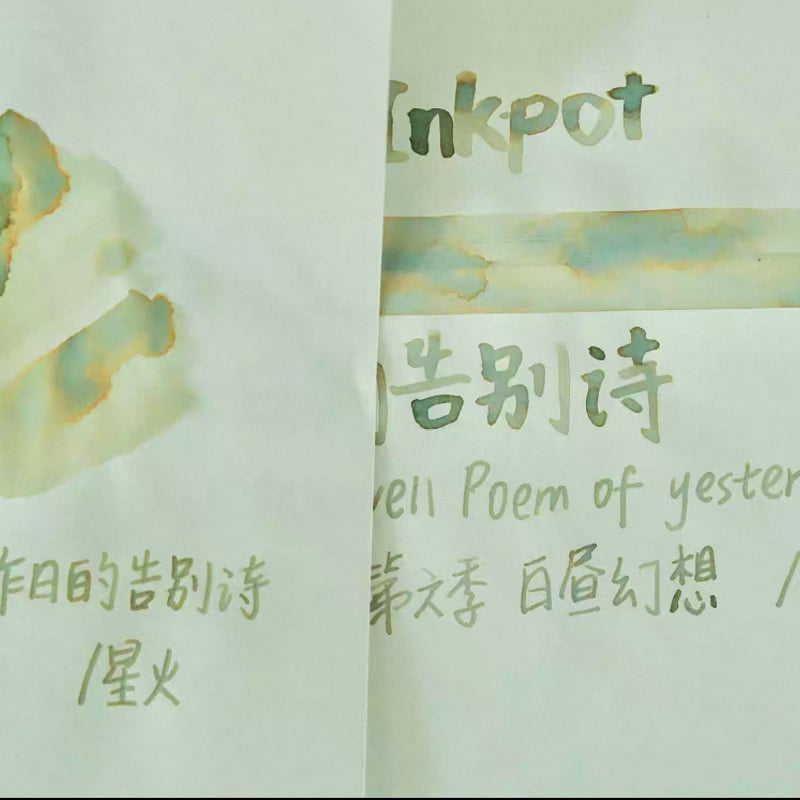 昨日的告别诗
/星火
Inkpot
告别诗
Poem of yester
第六季 白昼幻想 /